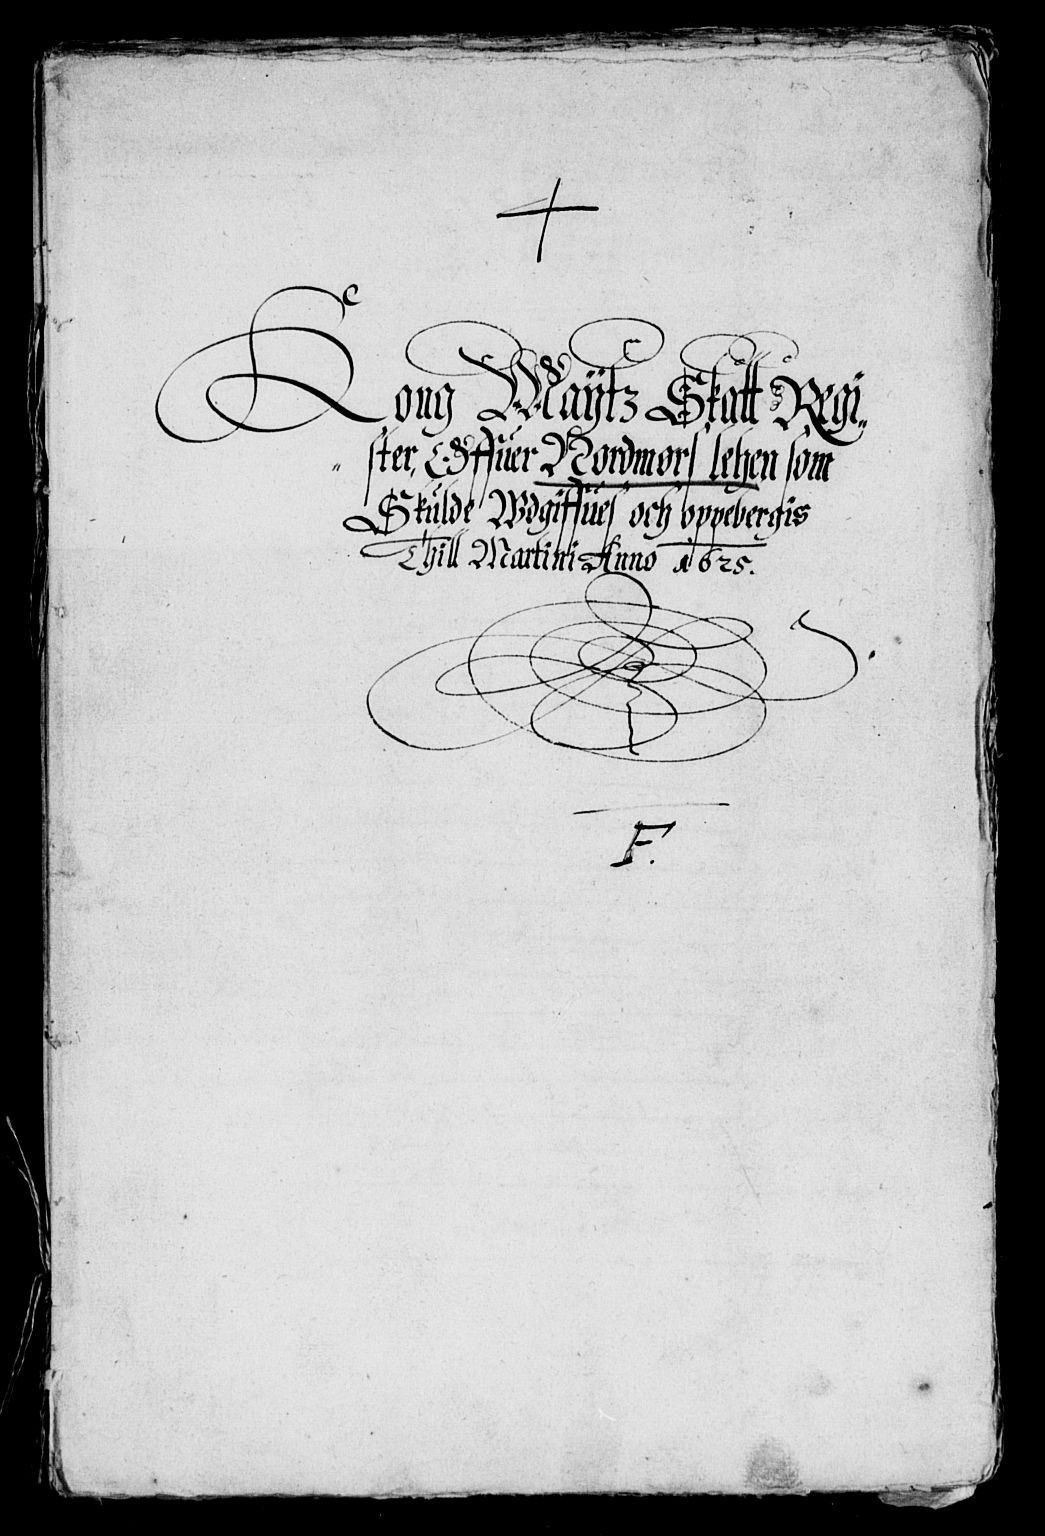 Kong Maÿtz Skatt Regi„
„ ster, Offuer Nordmørs lehen som
Skulde Wdgiffues och oppebergis
Thill Martini Anno 1625.
F.